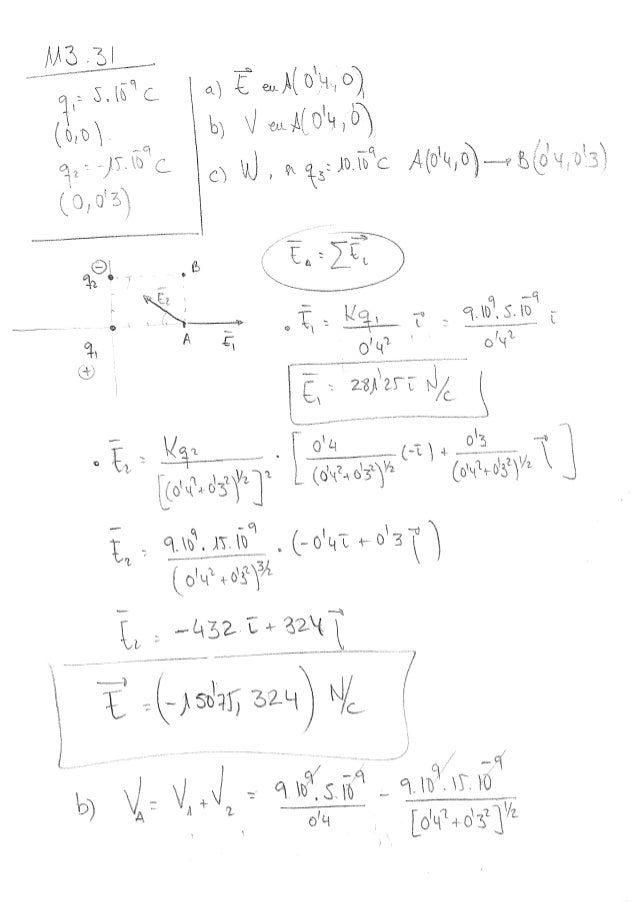 M3.31
q₁ = 5.10⁻⁹ C
(0,0)
q₂ = -15.10⁻⁹ C
(0,0'3)
a) E⃗ en A(0'4,0)
b) V en A(0'4,0)
c) W, a q₃ = 10.10⁻⁹ C A(0'4,0) → B(0'4,0'3)
E⃗_A = ∑E⃗ᵢ
q₂ ⊖ B
E⃗₂
A E⃗₁
q₁
⊕
• E⃗₁ = Kq₁/0'4² i⃗ = 9.10⁹.5.10⁻⁹/0'4² i⃗
E⃗₁ = 281'25 i⃗ N/C
• E⃗₂ = Kq₂/[(0'4²+0'3²)^1/2]² · [0'4/(0'4²+0'3²)^1/2 (-i⃗) + 0'3/(0'4²+0'3²)^1/2 j⃗]
E⃗₂ = 9.10⁹.15.10⁻⁹/(0'4²+0'3²)^3/2 · (-0'4 i⃗ + 0'3 j⃗)
E⃗₂ = -432 i⃗ + 324 j⃗
E⃗ = (-150'75, 324) N/C
b) V_A = V₁ + V₂ = 9.10⁹.5.10⁻⁹/0'4 - 9.10⁹.15.10⁻⁹/[0'4²+0'3²]^1/2